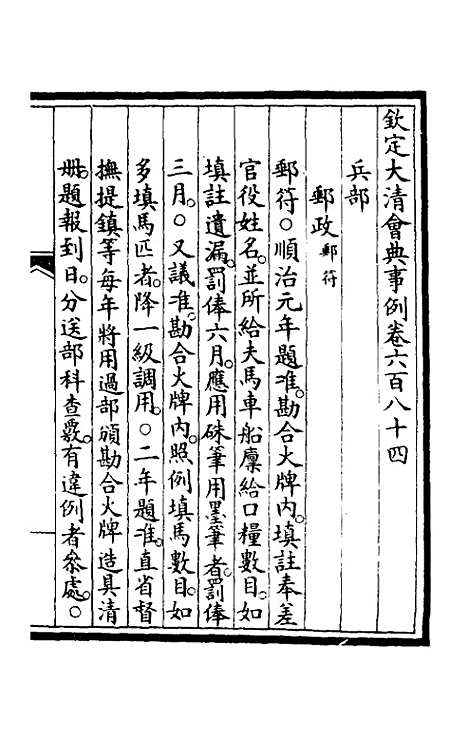 欽定大清會典事例卷六百八十四
兵部
郵政郵符
郵符○順治元年題准。勘合火牌內。填註奉差
官役姓名。並所給夫馬車船廩給口糧數目。如
填註遺漏。罰俸六月。應用硃筆用墨筆者。罰俸
三月。○又議准。勘合火牌內。照例填馬數目。如
多填馬匹者。降一級調用。○二年題准。直省督
撫提鎮等每年將用過部頒勘合火牌造具清
冊。題報到日。分送部科查覈。有違例者參處。○